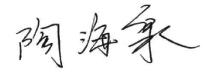 陶海泉